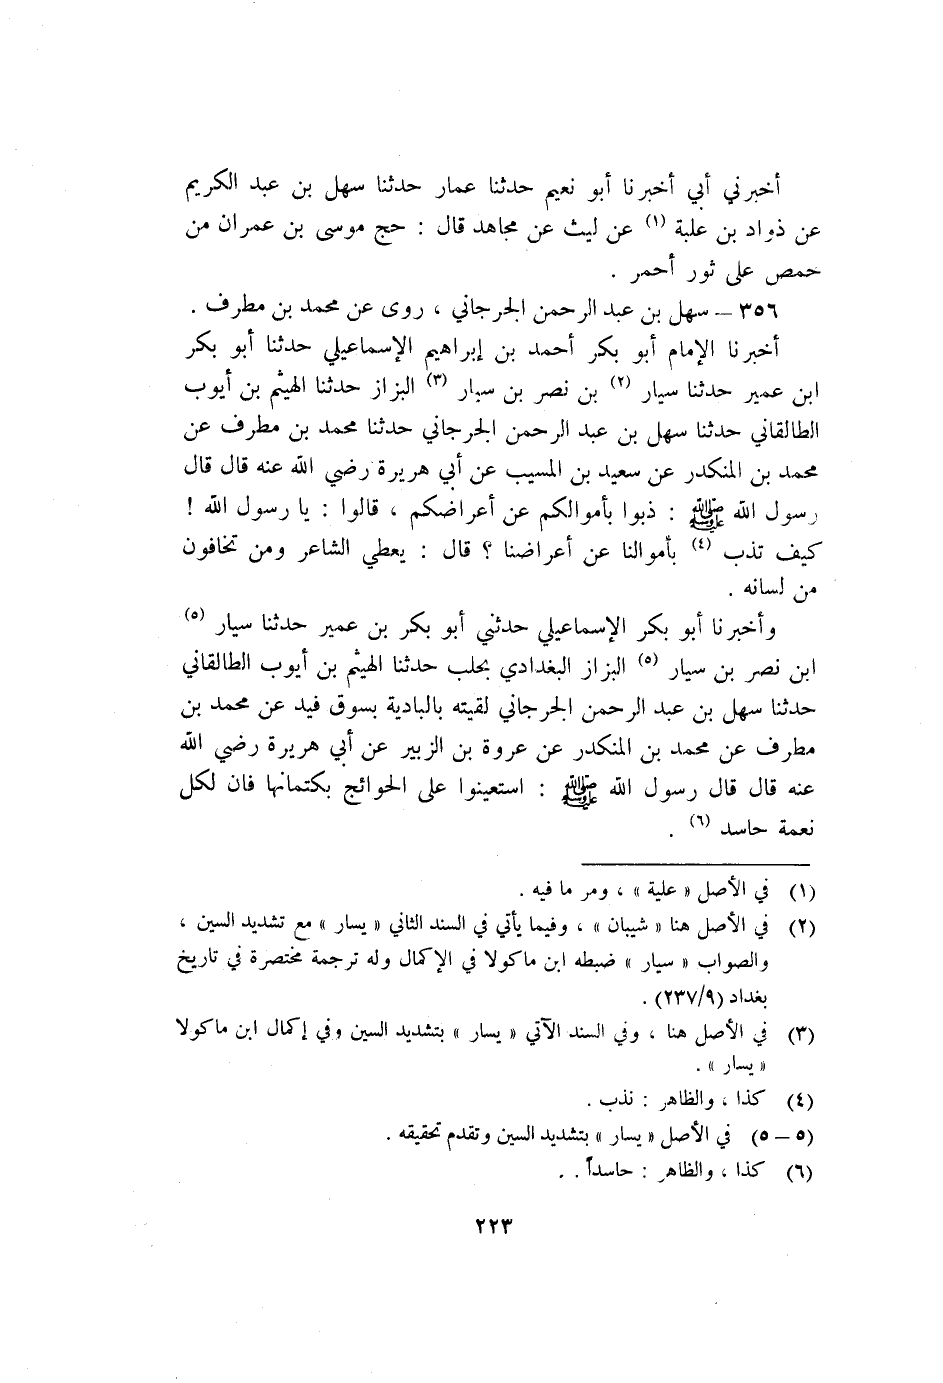 أخبرني أبي أخبرنا أبو نعيم حدثنا عمار حدثنا سهل بن عبد الكريم
عن ذواد بن علبة (١) عن ليث عن مجاهد قال : حج موسى بن عمران من
حمص على ثور أحمر .
٣٥٦ ــ سهل بن عبد الرحمن الجرجاني ، روى عن محمد بن مطرف .
أخبرنا الإمام أبو بكر أحمد بن إبراهيم الإسماعيلي حدثنا أبو بكر
ابن عمير حدثنا سيار (٢) بن نصر بن سيار (٣) البزاز حدثنا الهيثم بن أيوب
الطالقاني حدثنا سهل بن عبد الرحمن الجرجاني حدثنا محمد بن مطرف عن
محمد بن المنكدر عن سعيد بن المسيب عن أبي هريرة رضي الله عنه قال قال
رسول الله ﷺ : ذبوا بأموالكم عن أعراضكم ، قالوا : يا رسول الله !
كيف تذب (٤) بأموالنا عن أعراضنا ؟ قال : يعطي الشاعر ومن تخافون
من لسانه .
وأخبرنا أبو بكر الإسماعيلي حدثني أبو بكر بن عمير حدثنا سيار (٥)
ابن نصر بن سيار (٥) البزاز البغدادي بحلب حدثنا الهيثم بن أيوب الطالقاني
حدثنا سهل بن عبد الرحمن الجرجاني لقيته بالبادية بسوق فيد عن محمد بن
مطرف عن محمد بن المنكدر عن عروة بن الزبير عن أبي هريرة رضي الله
عنه قال قال رسول الله ﷺ : استعينوا على الحوائج بكتمانها فان لكل
نعمة حاسد (٦) .
(١) في الأصل « علية » ، ومر ما فيه .
(٢) في الأصل هنا « شيبان » ، وفيما يأتي في السند الثاني « يسار » مع تشديد السين ،
والصواب « سيار » ضبطه ابن ماكولا في الإكمال وله ترجمة مختصرة في تاريخ
بغداد (٢٣٧/٩) .
(٣) في الأصل هنا ، وفي السند الآتي « يسار » بتشديد السين وفي إكمال ابن ماكولا
« يسار » .
(٤) كذا ، والظاهر : نذب .
(٥ ــ ٥) في الأصل « يسار » بتشديد السين وتقدم تحقيقه .
(٦) كذا ، والظاهر : حاسداً . .
٢٢٣